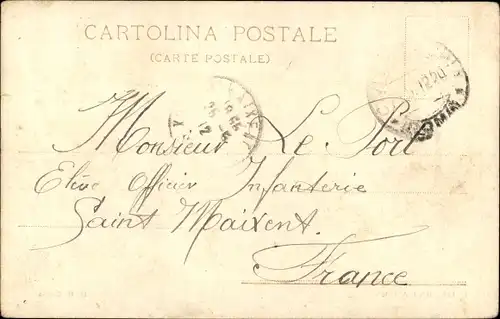 CARTOLINA POSTALE
(CARTE POSTALE)
Monsieur Le Port
Elève Officier Infanterie
Saint Maixent.
France